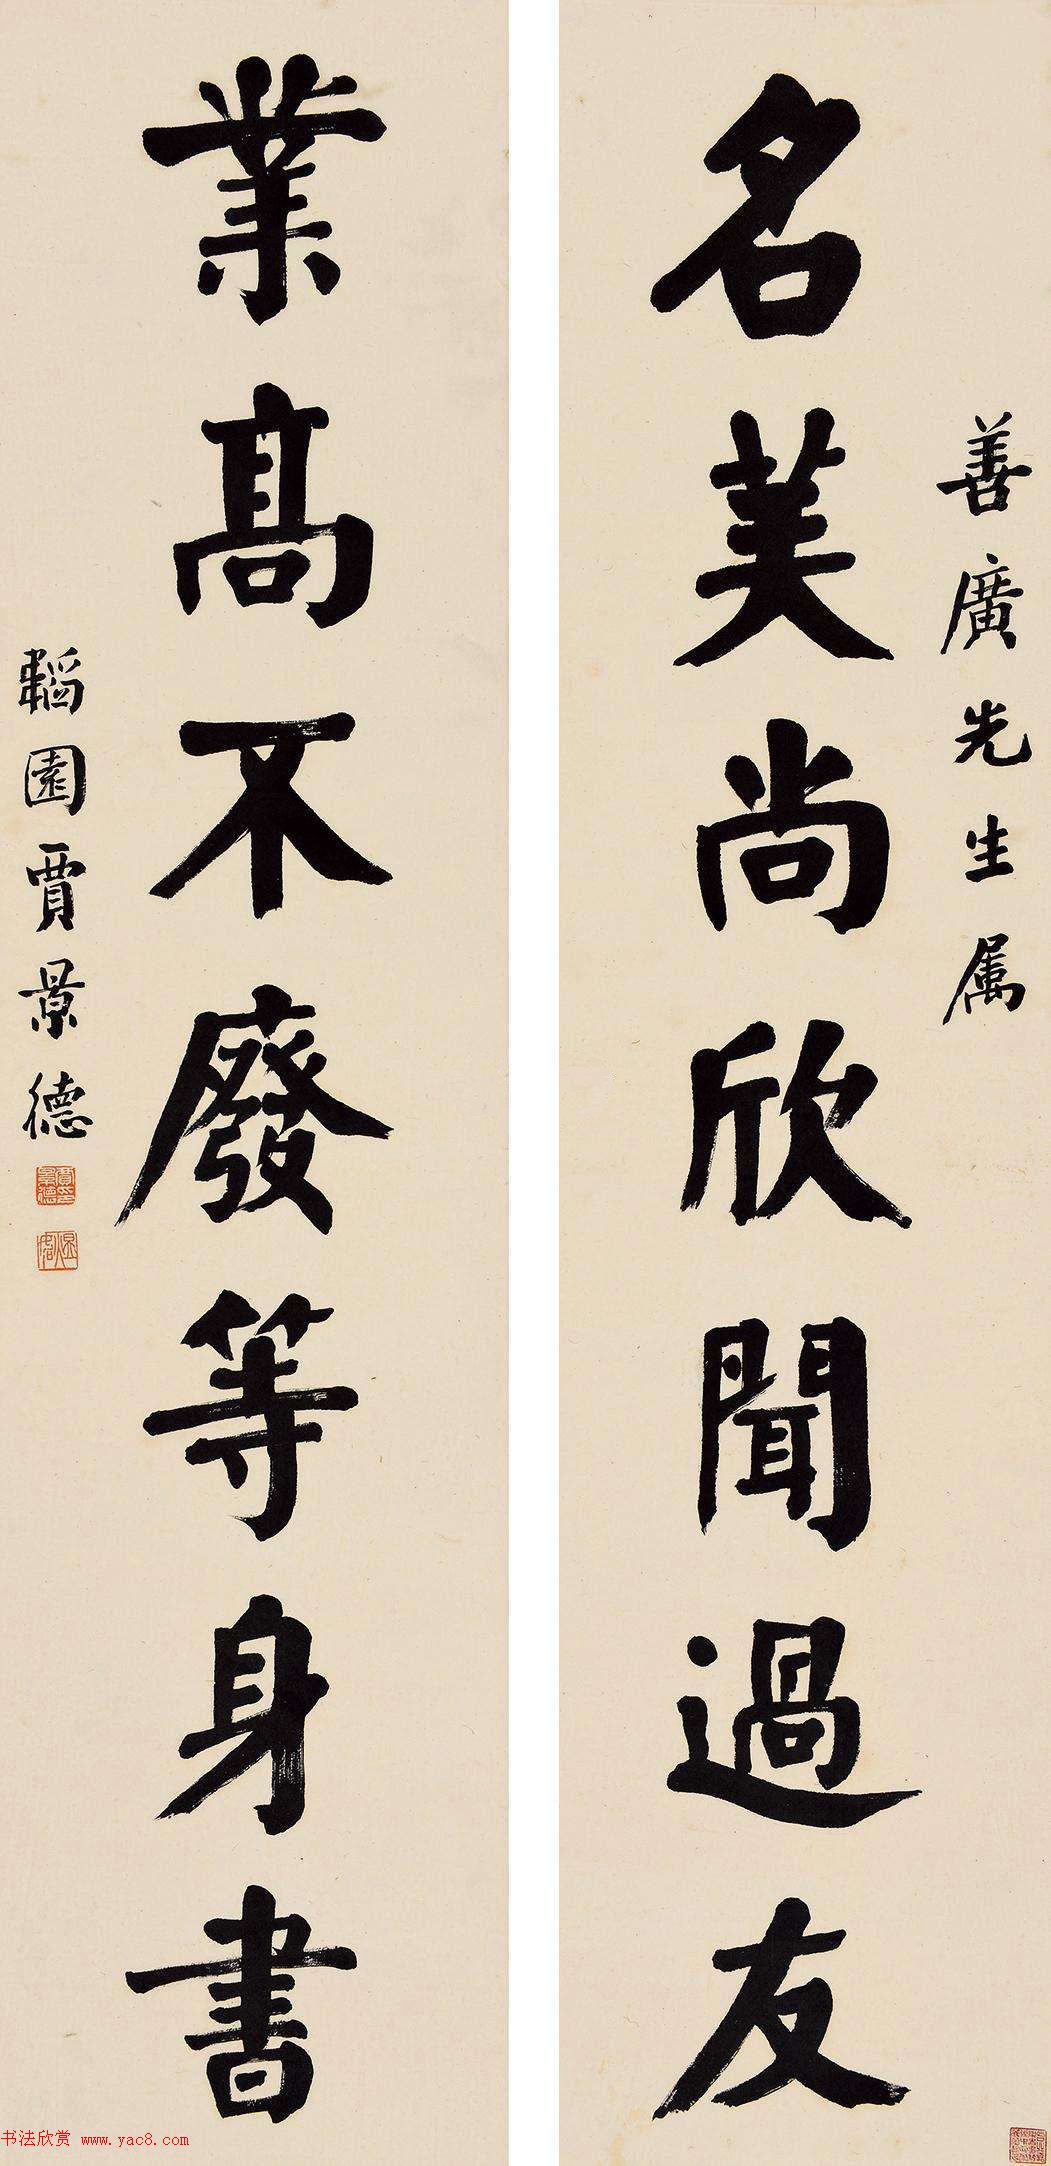 善廣先生属
名美尚欣聞過友
業高不廢等身書
韜園賈景德
書法欣赏 www.yac8.com